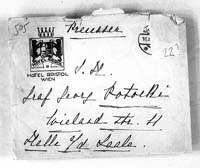 505
Einsser
221
HOTEL BRISTOL
WIEN
S. D.
Graf Georg Potocki
Wielandstr. 4
Halle a/d Saale.